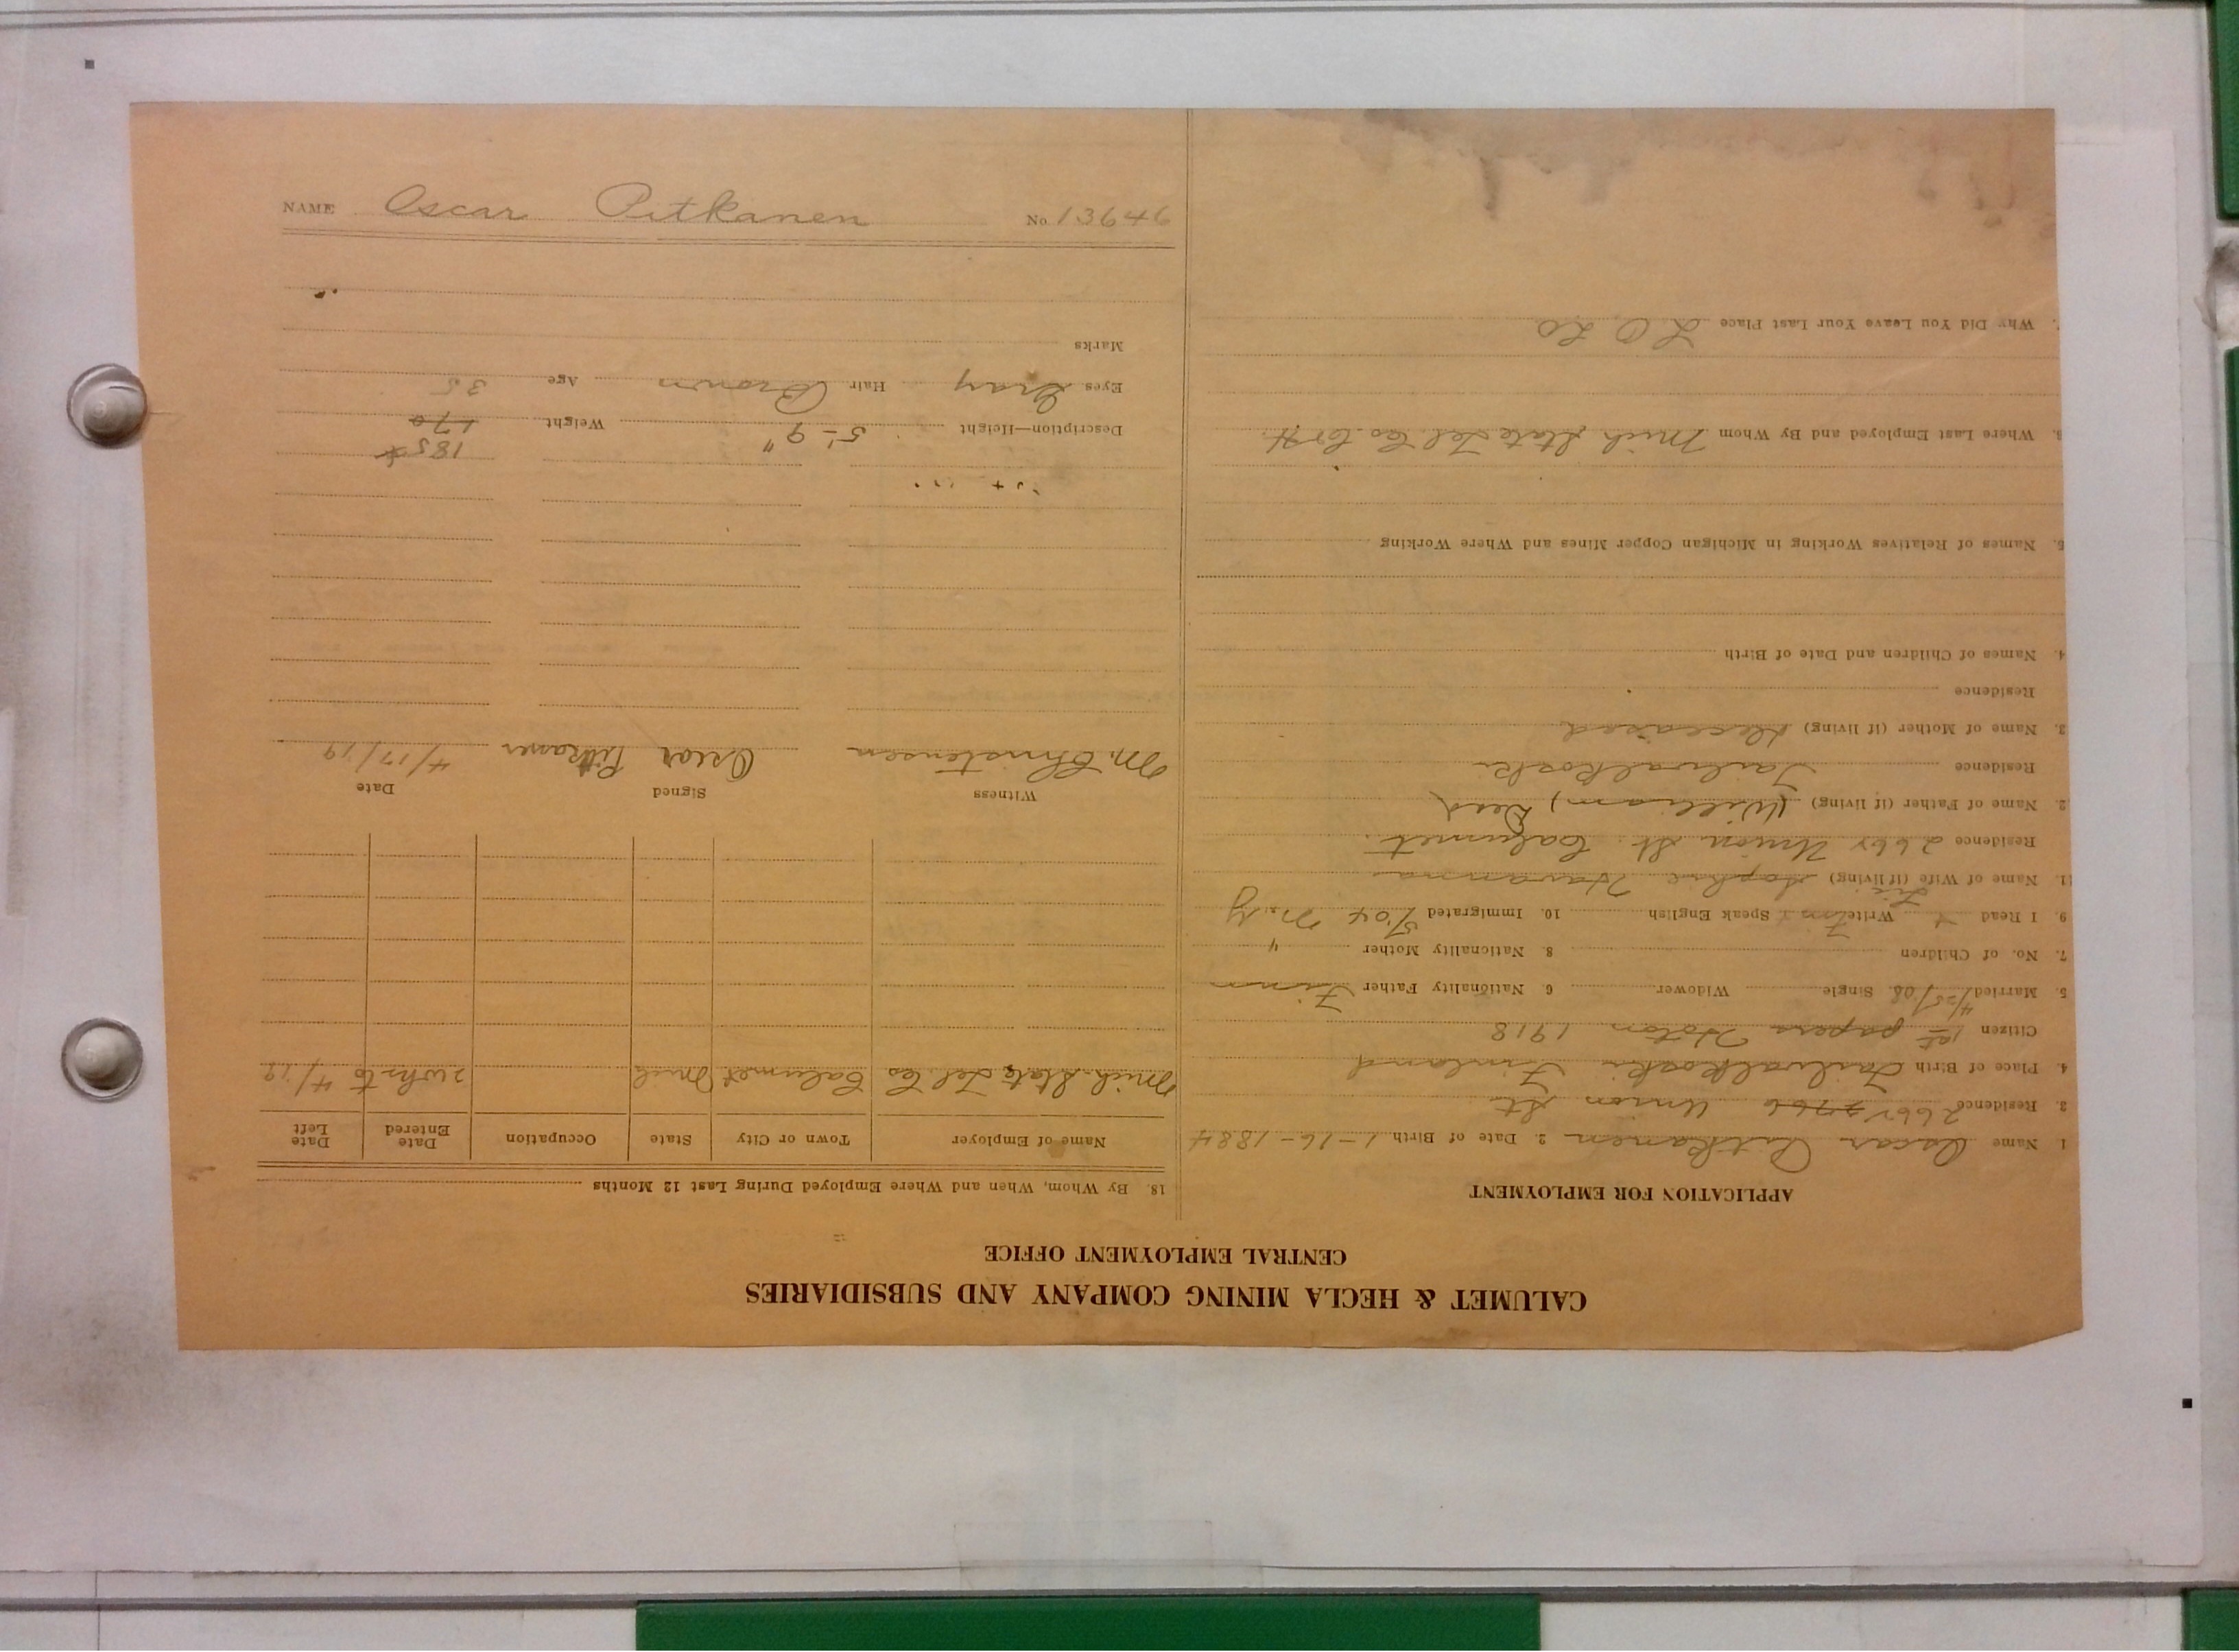 CALUMET & HECLA MINING COMPANY AND SUBSIDIARIES
CENTRAL EMPLOYMENT OFFICE
APPLICATION FOR EMPLOYMENT
1. Name Oscar Pitkanen 2. Date of Birth 1-16-1884
3. Residence 2668 Union St
4. Place of Birth Taivalkoski Finland
Citizen 1st papers Hoton 1918
5. Married 4/25/08 Single Widower 6. Nationality Father Finn
7. No. of Children 8. Nationality Mother "
9. I Read Write Speak English 10. Immigrated 5/04 N.Y
11. Name of Wife (if living) Sophie
Residence 2668 Union St. Calumet
2. Name of Father (if living) (William) Dead
Residence Taivalkoski
3. Name of Mother (if living) Deceased
Residence
4. Names of Children and Date of Birth
5. Names of Relatives Working in Michigan Copper Mines and Where Working
6. Where Last Employed and By Whom Mich State Tel. Co.
7. Why Did You Leave Your Last Place
18. By Whom, When and Where Employed During Last 12 Months
Name of Employer Town or City State Occupation Date Entered Date Left
Mich. State Tel Co Calumet Mich 2 wks to 4/19
Witness Signed Date
M. Christensen Oscar Pitkanen 4/17/19
185
Description—Height 5'-9" Weight 170
Eyes Gray Hair Brown Age 35
Marks
NAME Oscar Pitkanen No. 13646